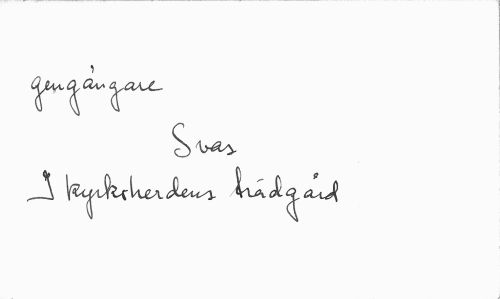 gengångare
Svas
I kyrkoherdens trädgård